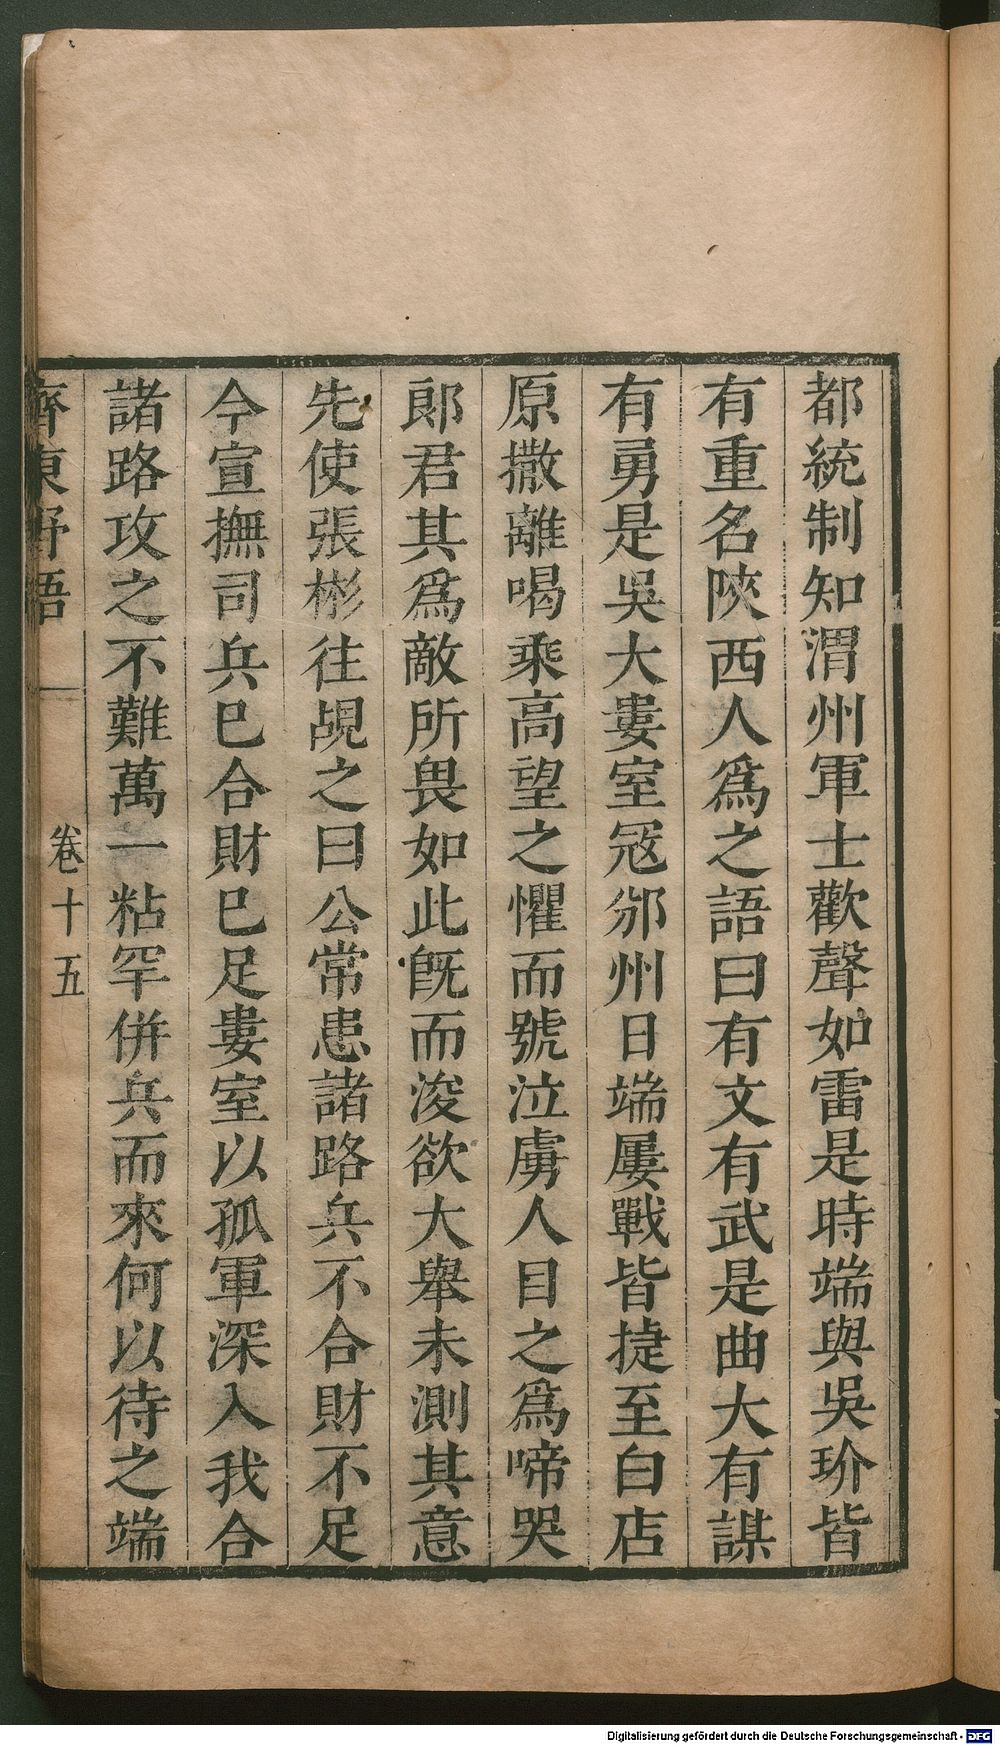 都統制知渭州軍士歡聲如雷是時端與吳玠皆
有重名陜西人爲之語曰有文有武是曲大有謀
有勇是吳大婁室冦邠州日端屢戰皆捷至白店
原撒離喝乘高望之懼而號泣虜人目之爲啼哭
郞君其爲敵所畏如此旣而浚欲大舉未測其意
先使張彬往覘之曰公常患諸路兵不合財不足
今宣撫司兵巳合財巳足婁室以孤軍深入我合
諸路攻之不難萬一粘罕併兵而來何以待之端
齊東野語 卷十五
Digitalisierung gefördert durch die Deutsche Forschungsgemeinschaft - DFG